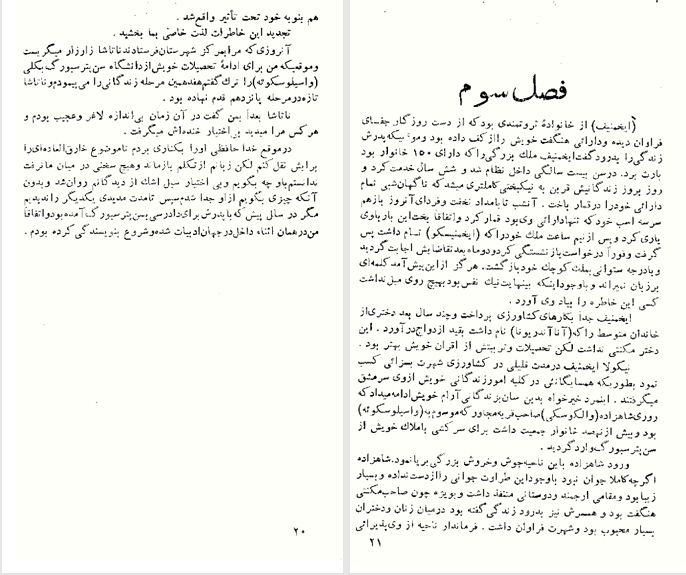 هم بنوبه خود تحت تأثیر واقع شد .
تجدید این خاطرات لذت خاصی بما بخشید .
آنروزی که مرا بمرکز شهرستان فرستادند ناتاشا زارزار میگریست
و موقعیکه من برای ادامهٔ تحصیلات خویش از دانشگاه سن‌پترسبورگ بکلی
(واسیلوسکوئه) را ترك گفتم هفدهمین مرحله زندگانی را می‌پیمودم و ناتاشا
تازه در مرحله پانزدهم قدم نهاده بود .
ناتاشا بعداً بمن گفت در آن زمان بی‌اندازه لاغر و عجیب بودم و
هر کس مرا میدید بی‌اختیار خنده‌اش میگرفت .
در موقع خدا حافظی اورا بکناری بردم تا موضوع خارق‌العاده‌ای را
برایش نقل کنم لکن زبانم از تکلم بازماند و هیچ سخنی در میان ما نرفت
ندانستم باو چه بگویم و بی اختیار سیل اشك از دیدگانم روان شد و بدون
آنکه چیزی بگویم از او جدا شدم سپس تا مدت مدیدی یکدیگر را ندیدیم
مگر در سال پیش که با پدرش برای دادرسی بسن‌پترسبورگ آمده بود و اتفاقاً
من در همان اثناء داخل در جهان ادبیات شده و شروع بنویسندگی کرده بودم .
۲۰
فصل سوم
(ایخمنیف) از خانوادهٔ ثروتمندی بود که از دست روزگار جفای
فراوان دیده و دارائی هنگفت خویش را از کف داده بود و موقعیکه پدرش
زندگی را بدرود گفت ایخمنیف ملك بزرگی را که دارای ۱۵۰ خانوار بود
بارث برد . در سن بیست سالگی داخل نظام شد و شش سال خدمت کرد و
روز بروز زندگانیش قرین به نیکبختی کاملتری میشد که ناگهان شبی تمام
دارائی خود را در قمار باخت . آنشب تا بامداد نخفت و فردای آنروز بازهم
سرسه اسب خود که تنها دارائی وی بود قمار کرد و اتفاقاً بخت این بار باوی
یاری کرد و پس از نیم ساعت ملك خود را که (ایخمنیسکو) نام داشت پس
گرفت و فوراً درخواست بازنشستگی کرد و دو ماه بعد تقاضایش اجابت گردید
و بادرجه ستوانی بملك کوچك خود بازگشت. هرگز از این پیش آمد کلمه‌ای
بر زبان نمیراند و باوجود اینکه بینهایت نیك نفس بود بهیچ روی میل نداشت
کسی این خاطره را بیاد وی آورد .
ایخمنیف جداً بکارهای کشاورزی پرداخت و چند سال بعد دختری از
خاندان متوسط را که (آنا آندریونا) نام داشت بقید ازدواج در آورد . این
دختر مکنتی نداشت لکن تحصیلات و تربیتش از اقران خویش بهتر بود .
نیکولا ایخمنیف در مدت قلیلی در کشاورزی شهرت بسزائی کسب
نمود بطوریکه همسایگانش در کلیه امور زندگانی خویش ازوی سرمشق
میگرفتند . اینمرد خیرخواه بدین سان بزندگانی آرام خویش ادامه میداد که
روزی شاهزاده (والکوسکی) صاحب قریه مجاور که موسوم به (واسیلوسکوئه)
بود و بیش از نهصد خانوار جمعیت داشت برای سرکشی باملاك خویش از
سن‌پترسبورگ وارد گردید .
ورود شاهزاده باین ناحیه جوش و خروش بزرگی برپا نمود. شاهزاده
اگرچه کاملا جوان نبود باوجود این طراوت جوانی را از دست نداده و بسیار
زیبا بود و مقامی ارجمند و دوستانی متنفذ داشت و بویژه چون صاحب مکنتی
هنگفت بود و همسرش نیز بدرود زندگی گفته بود در میان زنان و دختران
بسیار محبوب بود و شهرت فراوان داشت . فرماندار ناحیه از وی پذیرائی
۲۱